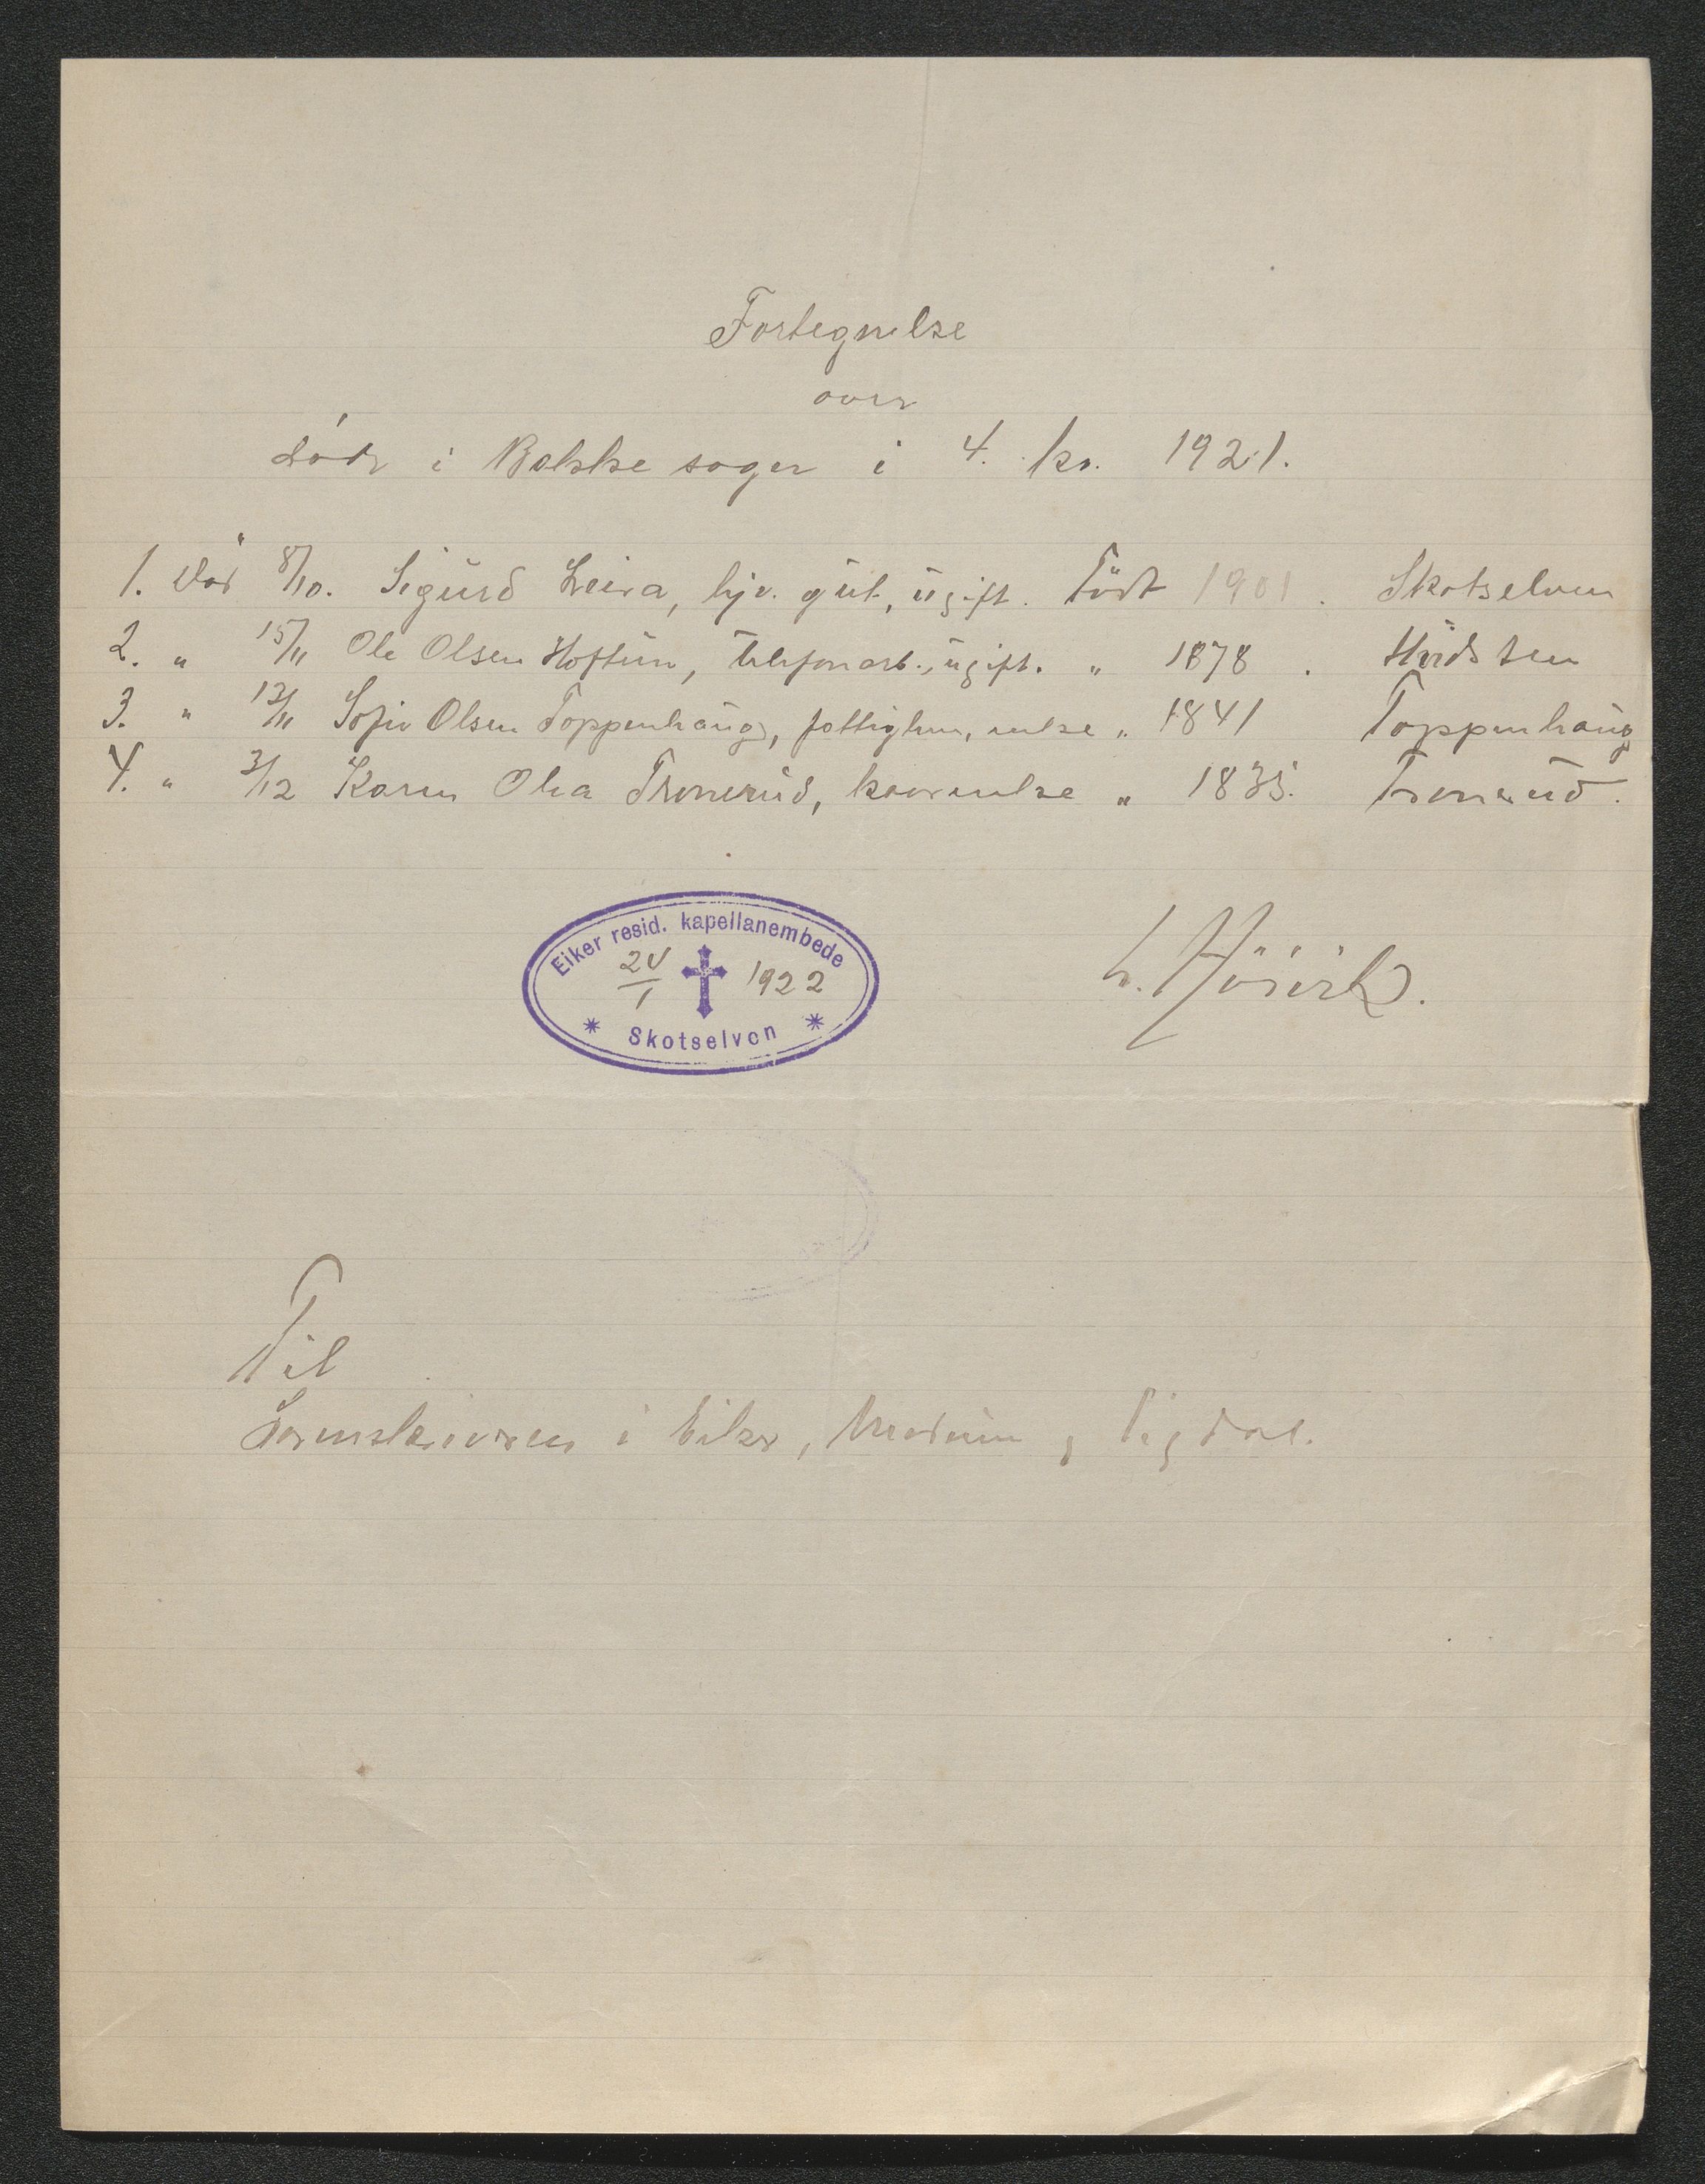 Fortegnelse
over
døde i Bakke sogn i 4. kv. 1921.
1. Død 8/10. Sigurd Leira, hjv. gut, ugift. Født 1901. Skotselven
2. " 15/11 Ole Olsen Hoftun, telefonarb., ugift. " 1878. Hårdsten
3. " 12/11 Sofie Olsen Toppenhaug, fattiglem, enke " 1841 Toppenhaug
4. " 3/12 Karen Olea Tronerud, kaarenke " 1835. Tronerud.
Eiker resid. kapellanembede
24/1 1922
* Skotselven *
Til
Sorenskriveren i Eiker, Modum og Sigdal.